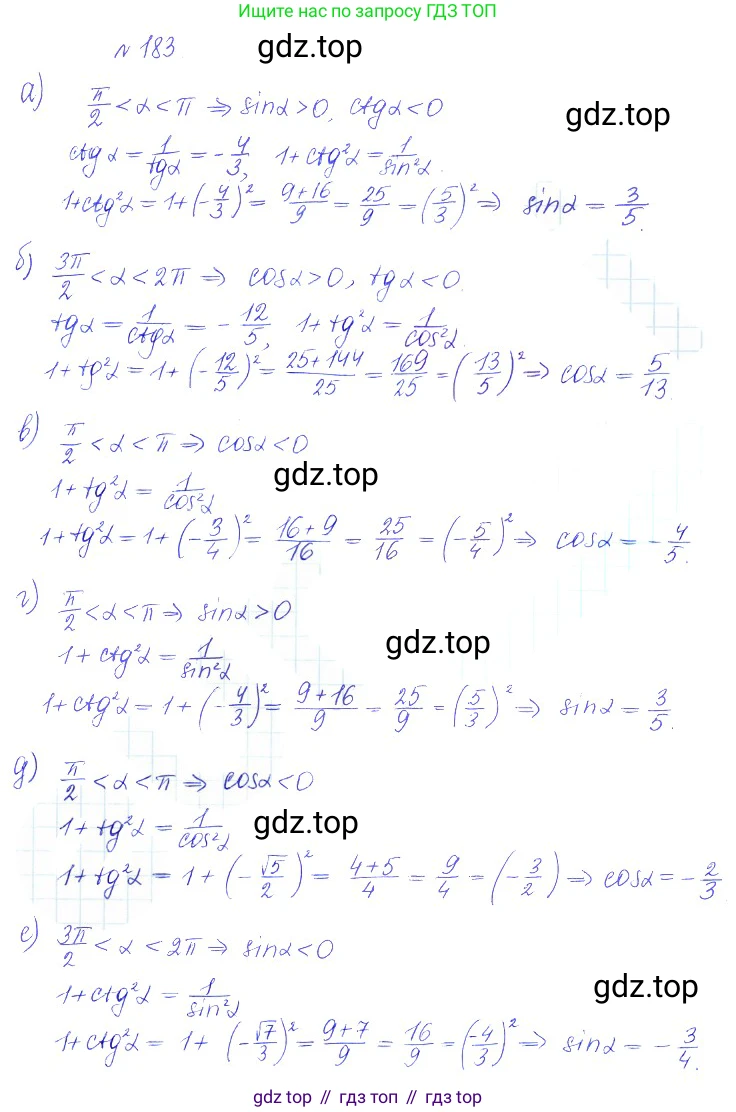 Ищите нас по запросу ГДЗ ТОП
№ 183
gdz.top
а) π/2 < α < π ⇒ sinα > 0, ctgα < 0
gdz.top
ctgα = 1/tgα = -4/3, 1 + ctg²α = 1/sin²α.
1 + ctg²α = 1 + (-4/3)² = (9+16)/9 = 25/9 = (5/3)² ⇒ sinα = 3/5.
б) 3π/2 < α < 2π ⇒ cosα > 0, tgα < 0.
tgα = 1/ctgα = -12/5, 1 + tg²α = 1/cos²α.
1 + tg²α = 1 + (-12/5)² = (25+144)/25 = 169/25 = (13/5)² ⇒ cosα = 5/13.
в) π/2 < α < π ⇒ cosα < 0
gdz.top
1 + tg²α = 1/cos²α
1 + tg²α = 1 + (-3/4)² = (16+9)/16 = 25/16 = (-5/4)² ⇒ cosα = -4/5.
г) π/2 < α < π ⇒ sinα > 0
gdz.top
1 + ctg²α = 1/sin²α
1 + ctg²α = 1 + (-4/3)² = (9+16)/9 = 25/9 = (5/3)² ⇒ sinα = 3/5.
д) π/2 < α < π ⇒ cosα < 0
1 + tg²α = 1/cos²α
gdz.top
1 + tg²α = 1 + (-√5/2)² = (4+5)/4 = 9/4 = (-3/2) ⇒ cosα = -2/3
е) 3π/2 < α < 2π ⇒ sinα < 0
gdz.top
1 + ctg²α = 1/sin²α
1 + ctg²α = 1 + (-√7/3)² = (9+7)/9 = 16/9 = (-4/3)² ⇒ sinα = -3/4.
gdz.top // гдз топ // гдз.топ